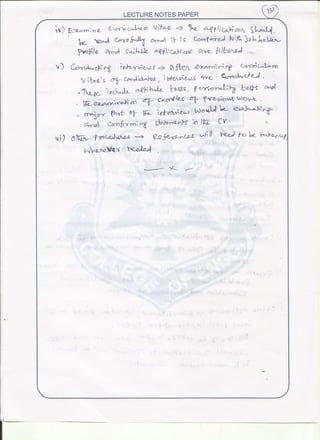 LECTURE NOTES PAPER
iv) Examine Curriculum Vitae → The application should
be read carefully and it is Compared with job holder
profile and suitable applications are filtered
v) Conducting interviews → After examining Curriculum
Vitae's of candidates, interviews are Conducted.
. These include aptitude tests, personality tests and
the examination of samples of previous work.
- major Part of the interview would be evaluating
and Confirming statements in the CV.
vi) Other Procedures → References will Need to be taken up
wherever Needed
x
JCE
COLLEGE OF